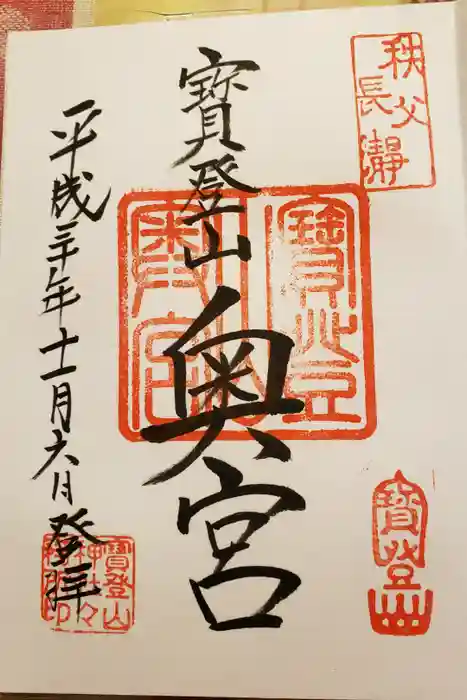 秩父
長瀞
寶登山
奥宮
寶登山
平成三十年十一月六日登拝
寶登山
神社々